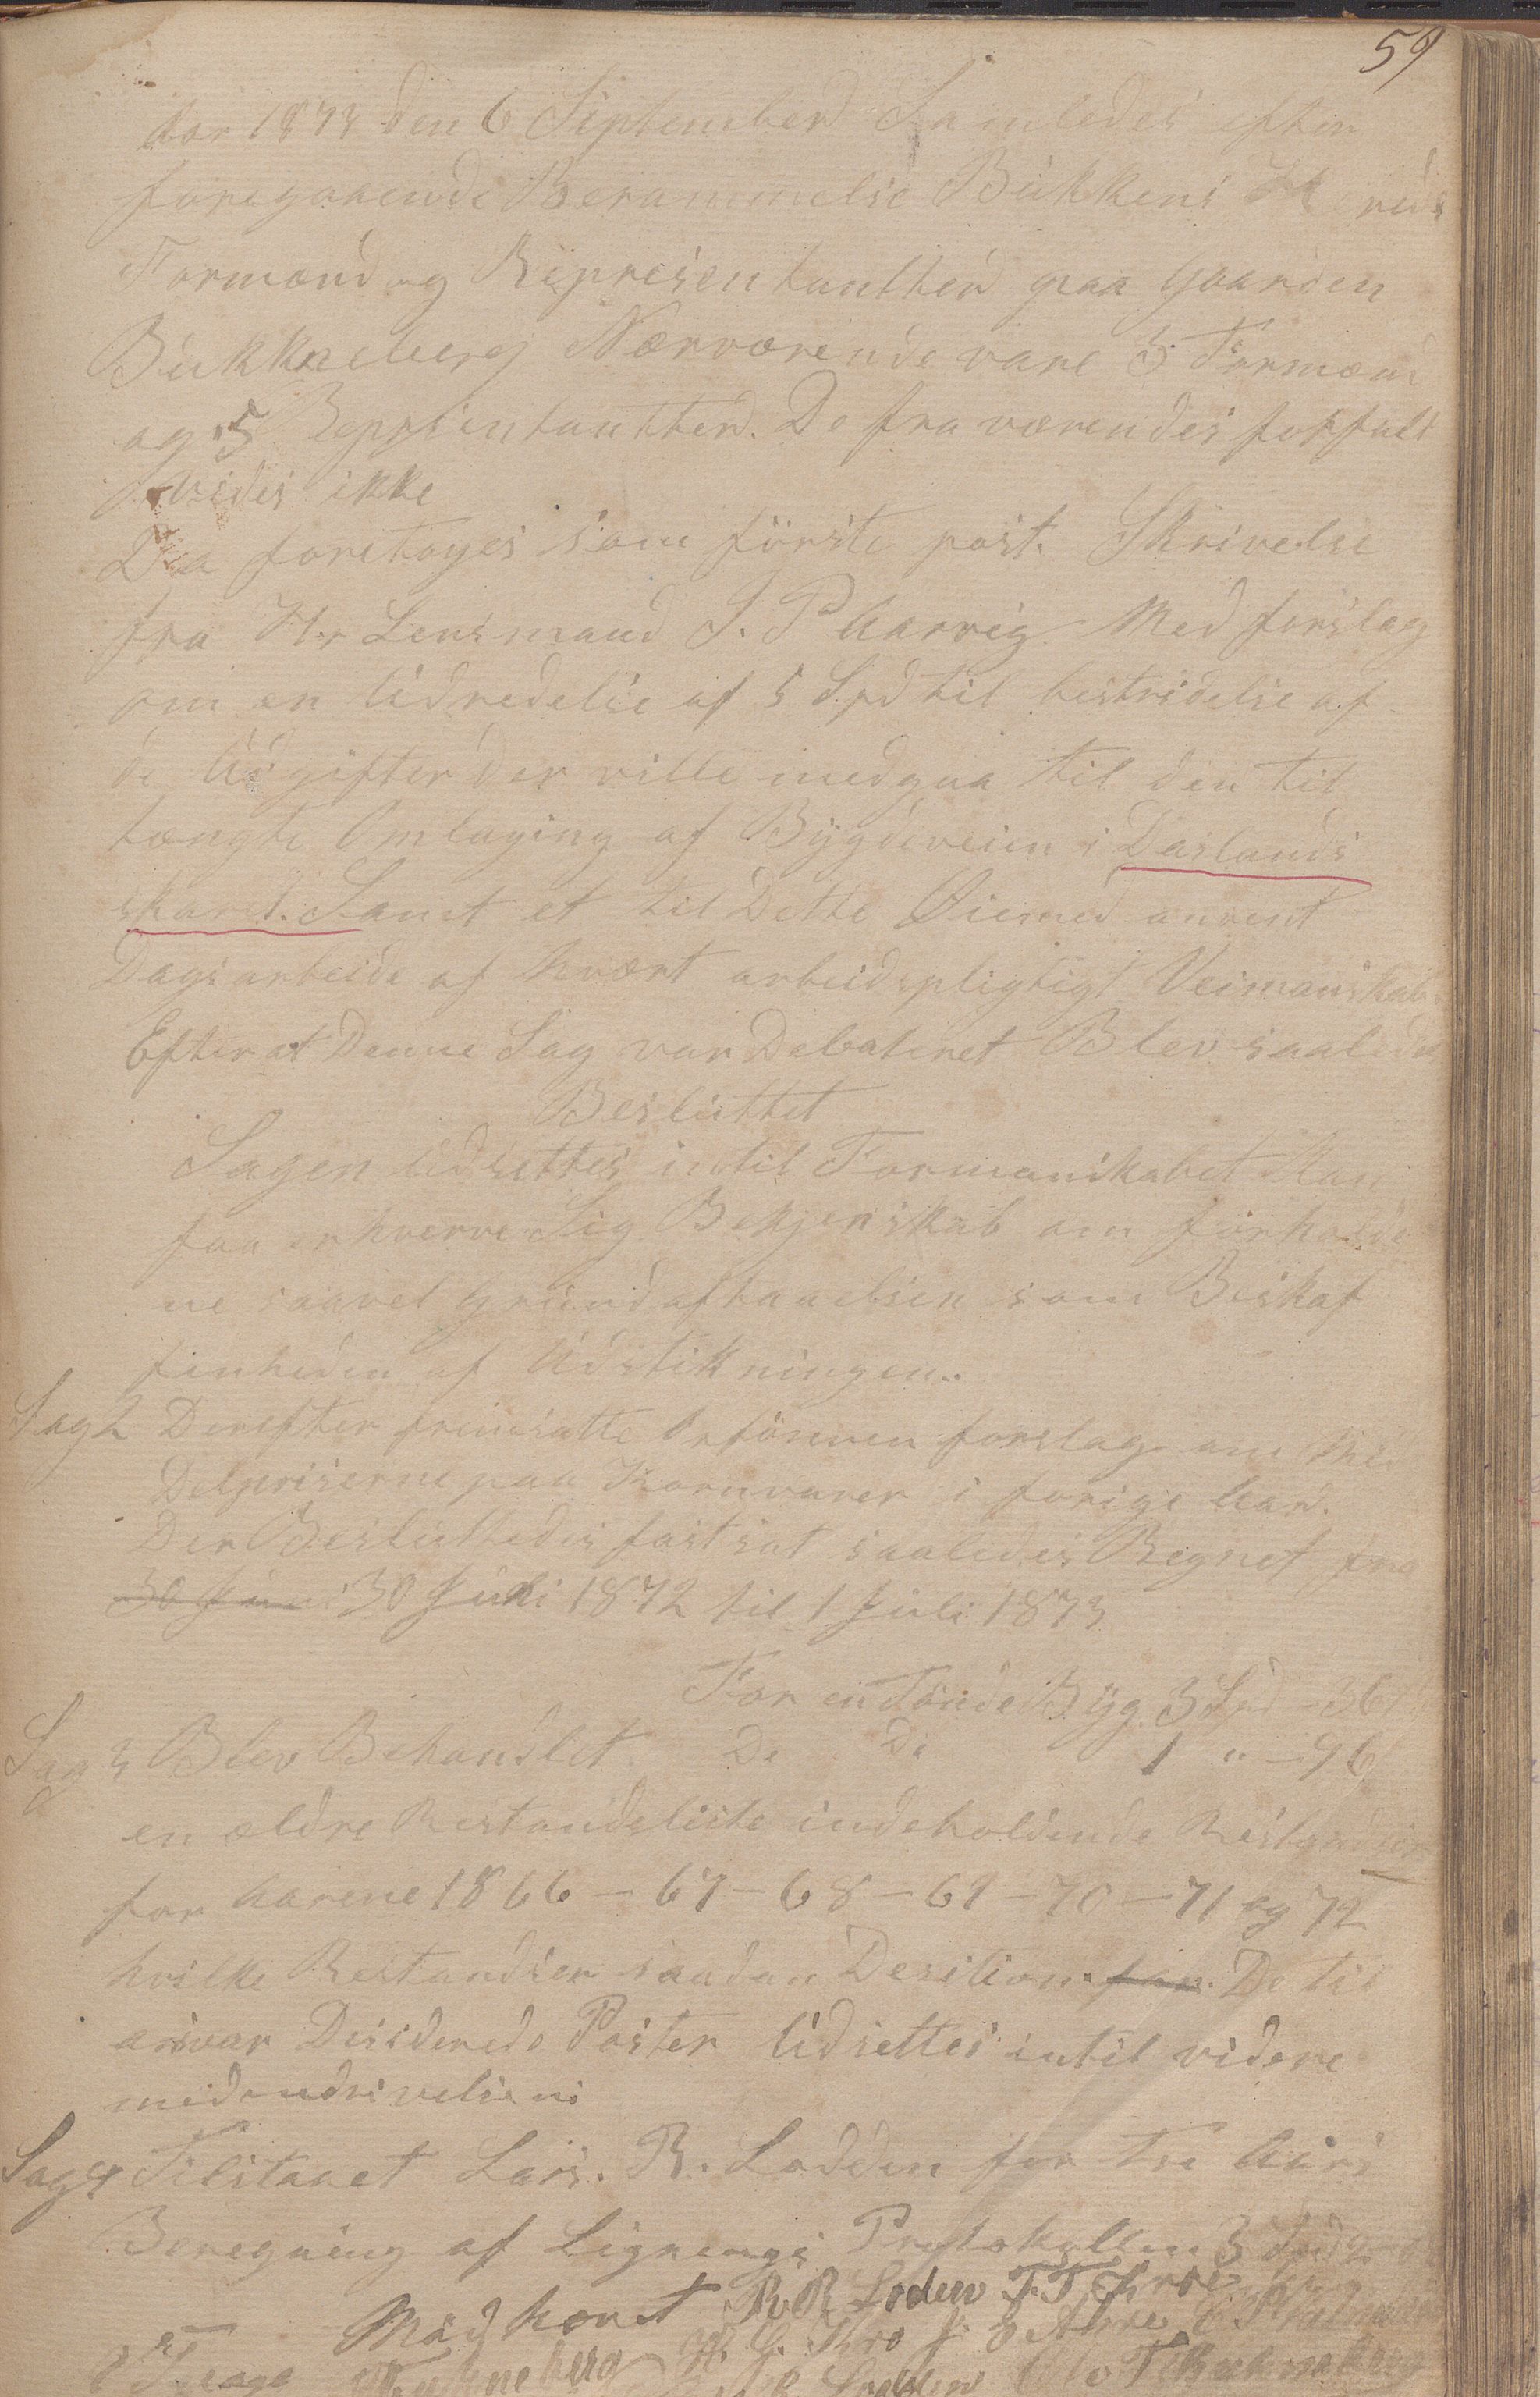 59
Aar 1873 den 6 September Samledes efter
foregaaende Berammelse Bukkens Hereds
Formænd og Representantter paa Gaarden
Bukkneberg Nærværende vare 3 Formænd
og 5 Represintantter. De fra værendes forfald
vides ikke
Da foretoges som förste post. Skrivelse
fra Hr Lensmand J. P Aarvig Med forslag
om en Udredelse af 5 Spd til bestridelse af
de Udgifter der ville medgaa til den til
tængte Omlaging af Bygdeveien i Daslands
skard. Samt et til Dette Øiemed anvent
Dagsarbeide af hvært arbeidspligtigt Veimanskab
Efter at Denne Sag var Debateret Blev saaledes
Besluttet
Sagen Udsettes intil Formanskabet Kan
faa erhverve Sig Bekjenskab om forholde
ne saavel Grundaftaaelsen som Beskaf
finheden af Udstikningen..
Sag 2 Derefter fremsatte Orföreren forslag om Med
Delpriserne paa Kornvarer i forige Aar.
Der Besluttedes fastsat saaledes Regnet fra
30 Juni 30 Juli 1872 til 1 Juli 1873
For en Tönde Byg 3 Spd - 36
Sag 3 Blev Behandlet. De Di 1 " - 96
en ældre Restandseliste indeholdende Restandser
for Aarene 1866 - 67 - 68 - 69 - 70 - 71 og 72
hvilke Restandser saadan Desition. De til
ansvar Desiderede Poster Udsettes intil videre
med indrivelsen
Sag 4 Tilstaaet Lars. R. Lodden for tre Aars
Beregning af Lignings Protokollen 3 Spd
R R Loden T. T. Kroe
H. G. Kro